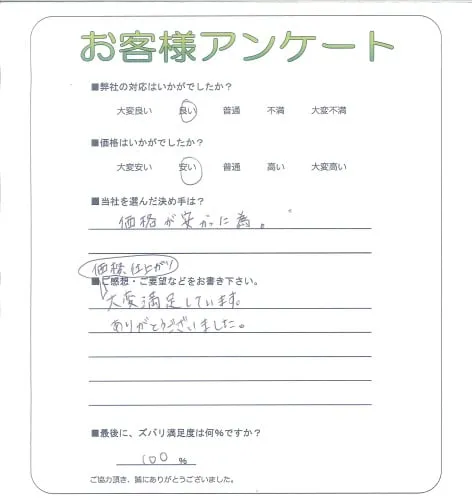 お客様アンケート
■弊社の対応はいかがでしたか？
大変良い 良い 普通 不満 大変不満
■価格はいかがでしたか？
大変安い 安い 普通 高い 大変高い
■当社を選んだ決め手は？
価格が安かった為。
価格、仕上がり
■ご感想・ご要望などをお書き下さい。
大変満足しています。
ありがとうございました。
■最後に、ズバリ満足度は何％ですか？
100 ％
ご協力頂き、誠にありがとうございました。